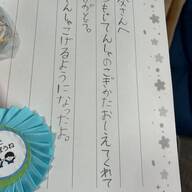 父さんへ
もじてんしゃのこぎかたおしえてくれて
がとう。
んしゃこげるようになったよ。